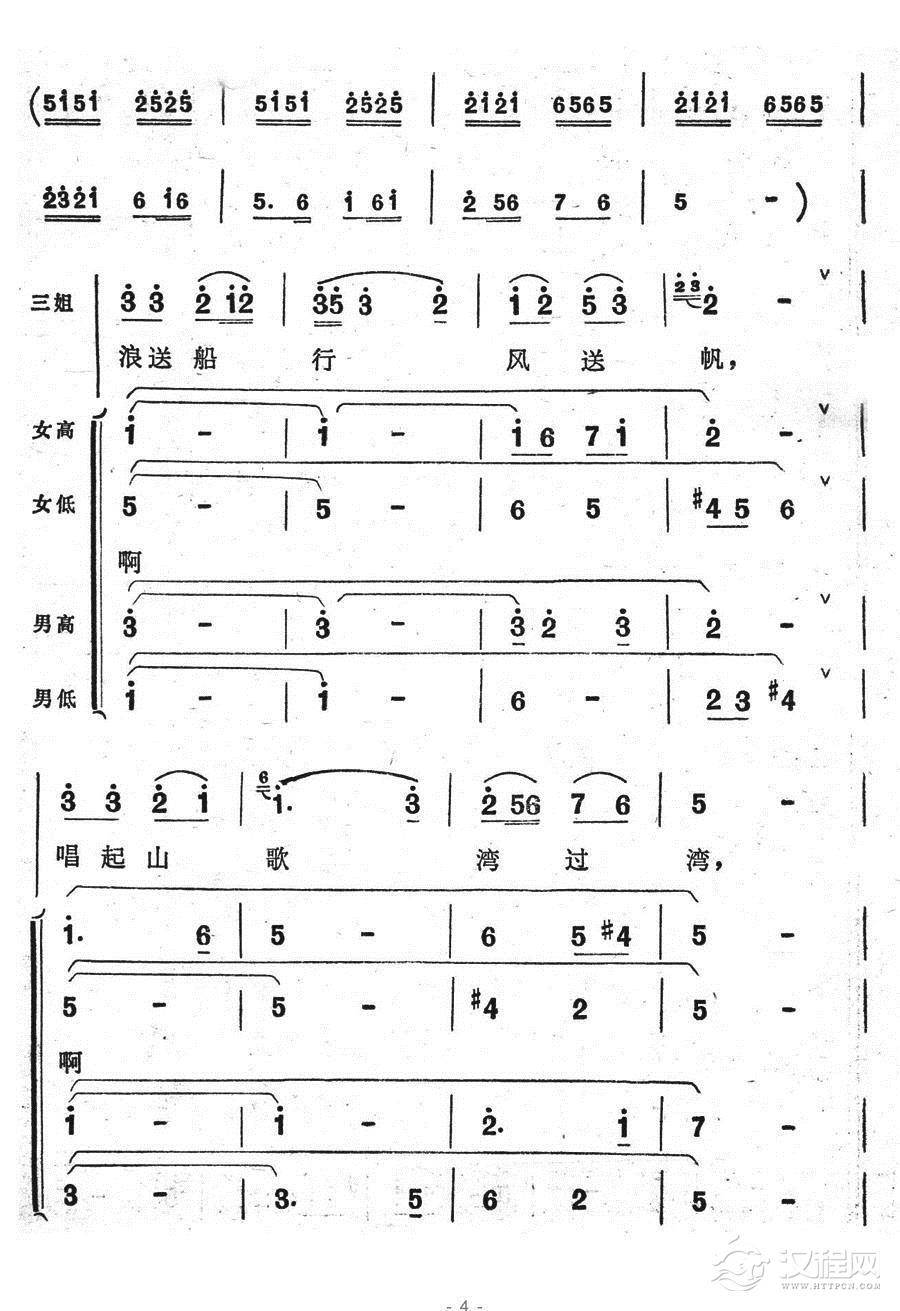 (5i5i 2̇5̇2̇5̇ | 5i5i 2̇5̇2̇5̇ | 2̇i2̇i 6565 | 2̇i2̇i 6565 |
2̇3̇2̇i 6 i6 | 5. 6 i 6i | 2̇ 56 7 6 | 5 - ) |
三姐 3̇ 3̇ 2̇ i2̇ | 3̇5̇ 3̇ 2̇ | i 2̇ 5̇ 3̇ | 2̇3̇ 2̇ - ∨ |
浪送船 行 风 送 帆,
女高 i - | i - | i 6 7 i | 2̇ - ∨ |
女低 5 - | 5 - | 6 5 | #4 5 6 ∨ |
啊
男高 3̇ - | 3̇ - | 3̇ 2̇ 3̇ | 2̇ - ∨ |
男低 i - | i - | 6 - | 2 3 #4 ∨ |
3̇ 3̇ 2̇ i | 6 i. 3̇ | 2̇ 56 7 6 | 5 - |
唱起山 歌 湾 过 湾,
i. 6 | 5 - | 6 5 #4 | 5 - |
5 - | 5 - | #4 2 | 5 - |
啊
i - | i - | 2̇. i | 7 - |
3 - | 3. 5 | 6 2 | 5 - |
汉程网
WWW.HTTPCN.COM
- 4 -